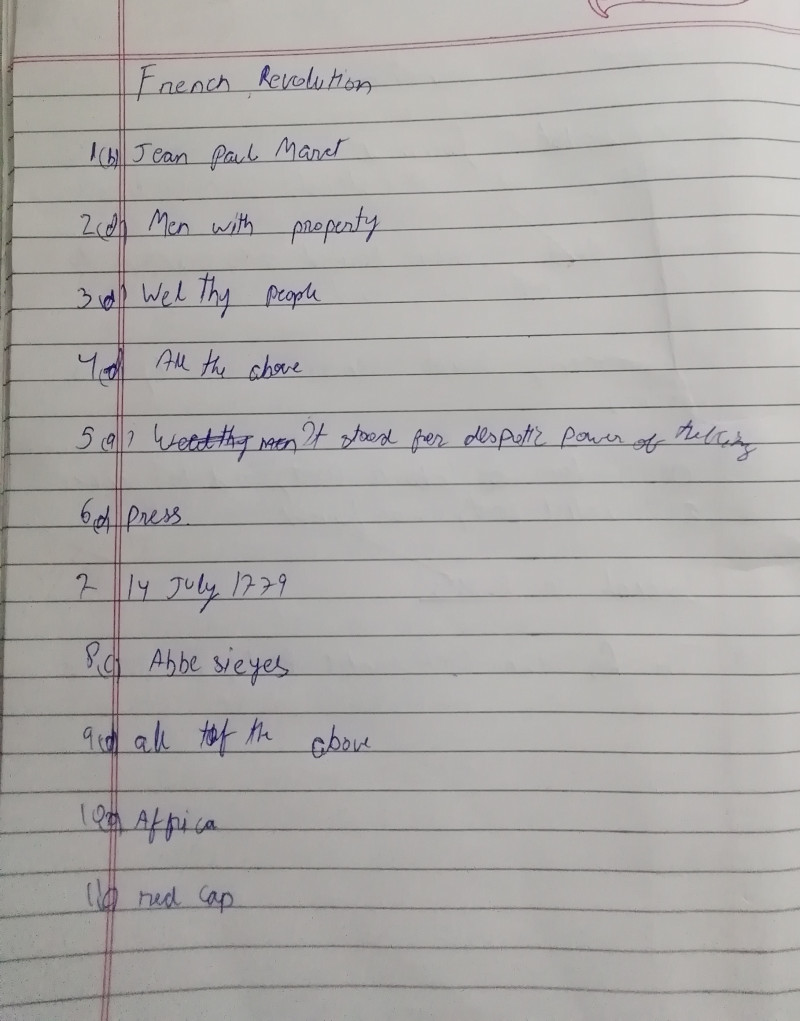 French Revolution
1(b) Jean Paul Maret
2(d) Men with property
3(d) Wel thy people
4(d) All the above
5(a) It stood for despotic power of the king
6(d) Press.
7 14 July 1779
8(c) Abbe sieyes
9(d) all of the above
10 Africa
11 red cap